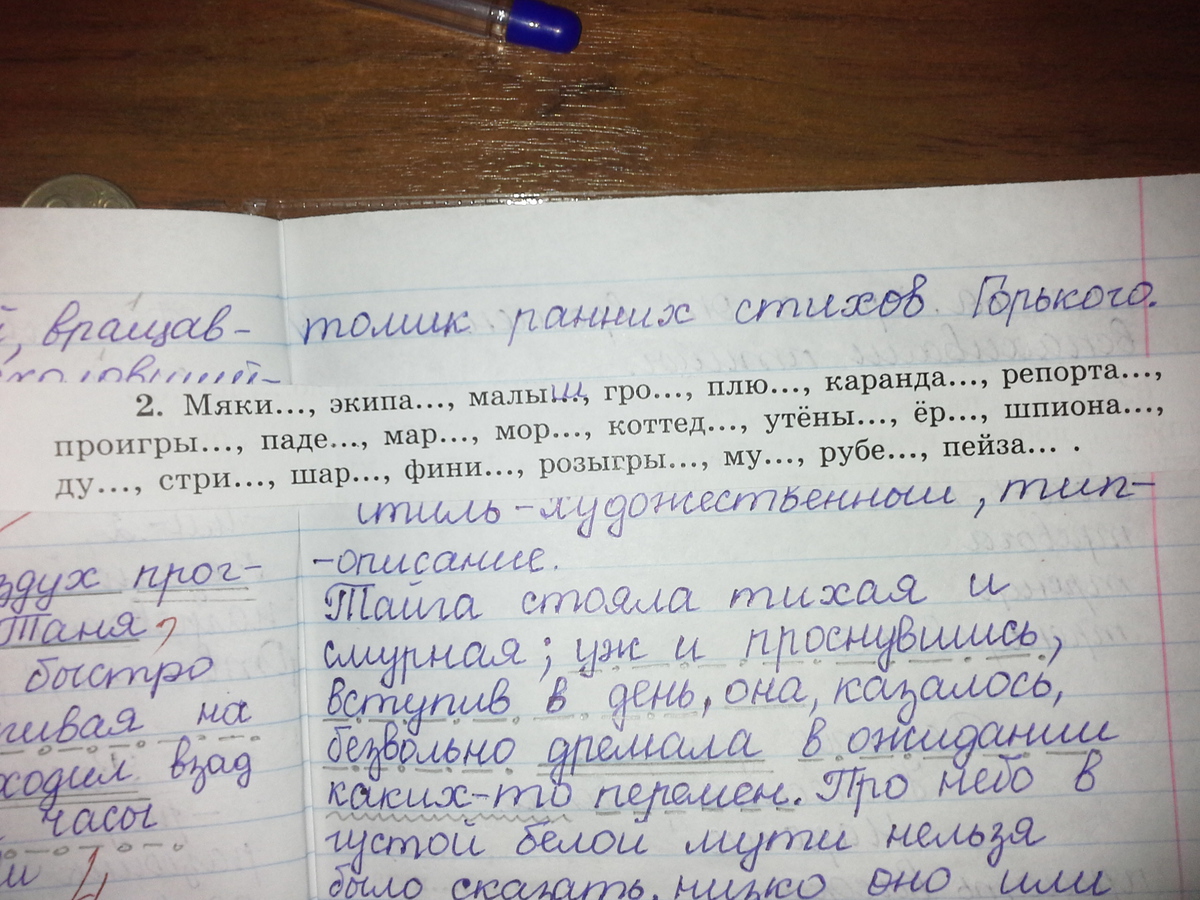 й, вращав-
толик ранних стихов Горького.
2. Мяки..., экипа..., малыш..., гро..., плю..., каранда..., репорта...,
проигры..., паде..., мар..., мор..., коттед..., утёны..., ёр..., шпиона...,
ду..., стри..., шар..., фини..., розыгры..., му..., рубе..., пейза... .
стиль-художественный, тип-
-описание.
здух прог-
Таня,
быстро
гивая на
ходил взад
часы
и
Тайга стояла тихая и
смурная; уж и проснувшись,
вступив в день, она, казалось,
безвольно дремала в ожидании
каких-то перемен. Про небо в
густой белой мути нельзя
было сказать, низко оно или